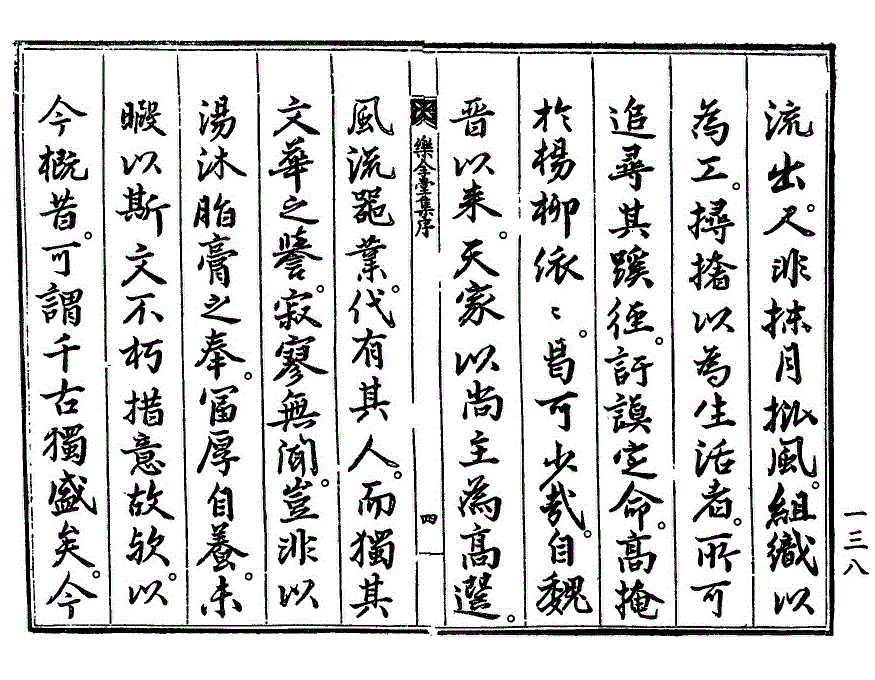 流出。又非抹月批風。組織以
為工。撏撦以為生活者。所可
追尋其蹊徑。訏謨定命。高掩
於楊柳依〻。曷可少哉。自魏
晉以来。天家以尚主為高選。
樂全堂集序
四
風流器業。代有其人。而獨其
文華之譽。寂寥無聞。豈非以
湯沐脂膏之奉。富厚自養。未
暇以斯文不朽措意故欤。以
今概昔。可謂千古獨盛矣。今
一三八